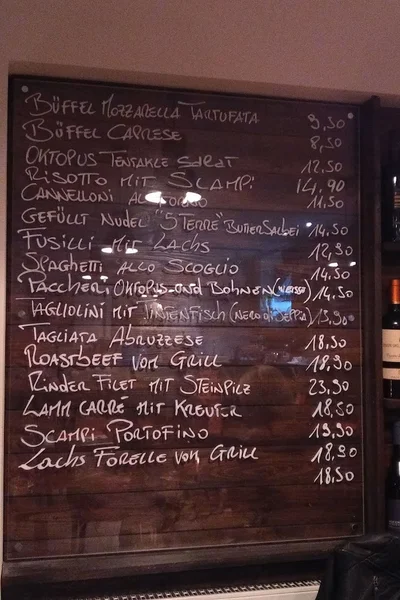 Büffel Mozzarella Tartufata 9,50
Büffel Caprese 8,50
Oktopus Tentakle Salat 12,50
Risotto mit Scampi 14,90
Cannelloni al Forno 11,50
Gefüllt Nudel "5 Terre" Butter Salbei 14,50
Fusilli mit Lachs 12,90
Spaghetti allo Scoglio 14,50
Paccheri Oktopus und Bohnen (weisse) 14,50
Tagliolini mit Tintenfisch (Nero di Seppia) 13,90
Tagliata Abruzzese 18,50
Roastbeef vom Grill 18,90
Rinder Filet mit Steinpilz 23,90
Lamm carré mit Kreuter 18,50
Scampi Portofino 19,90
Lachs Forelle vom Grill 18,90
18,50